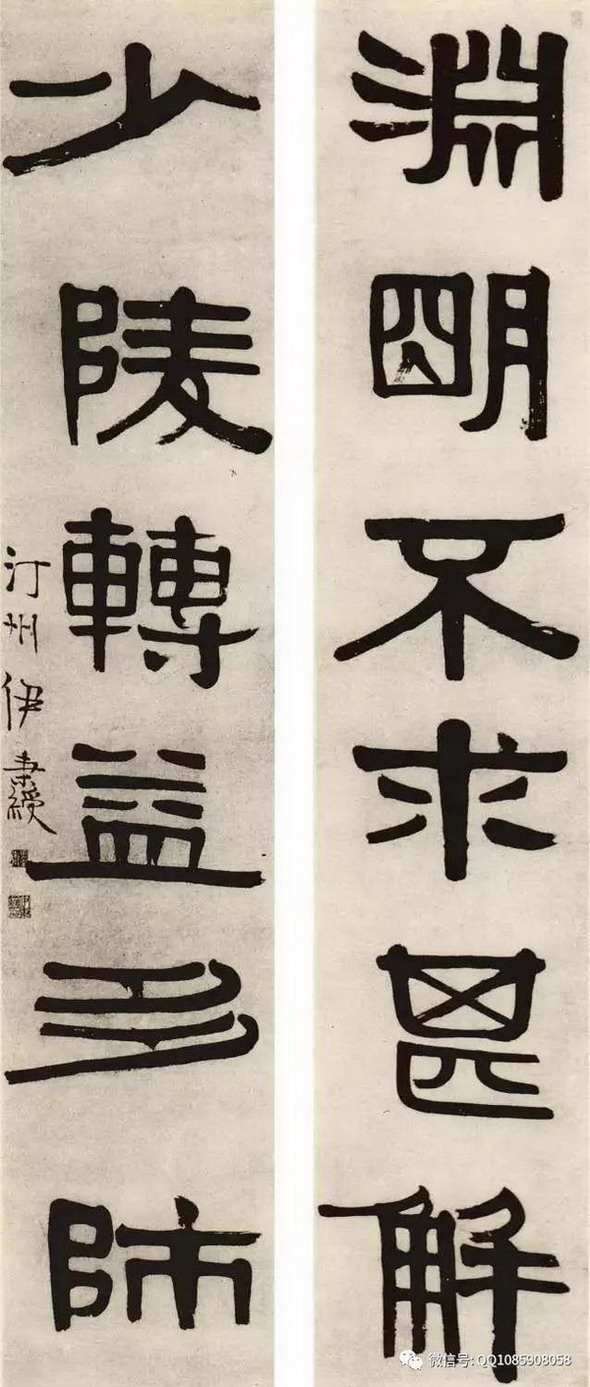 淵朙不求甚解
少陵轉益多師
汀州伊秉綬
微信号: QQ1085908058